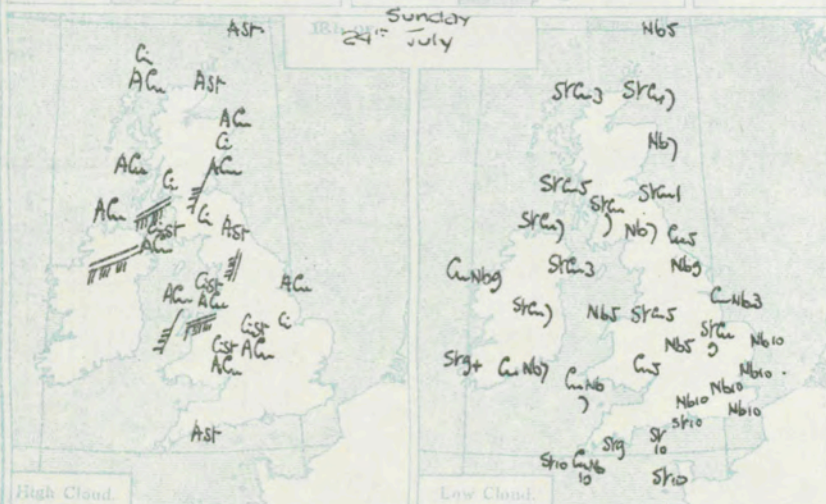 Sunday
24th July
ASt
Ci
ACu ASt
ACu
Ci
ACu
ACu
Ci
ACu
Ci
CiSt
ASt
ACu
CiSt
ACu
ACu
ACu
Ci
CiSt
CiSt ACu
ACu
ASt
High Cloud.
Nb5
StCu3 StCu7
Nb7
StCu5 StCu1
StCu
7
StCu7
Nb7 Cu5
CuNb9
StCu3
Nb9
CuNb3
StCu7
Nb5 StCu5
StCu
9
Nb5
Nb10
St9+ CuNb7
CuNb
7
Cu5
Nb10
Nb10
Nb10
Nb10
St10
St9
St
10
St10 CuNb
10
St10
Low Cloud.